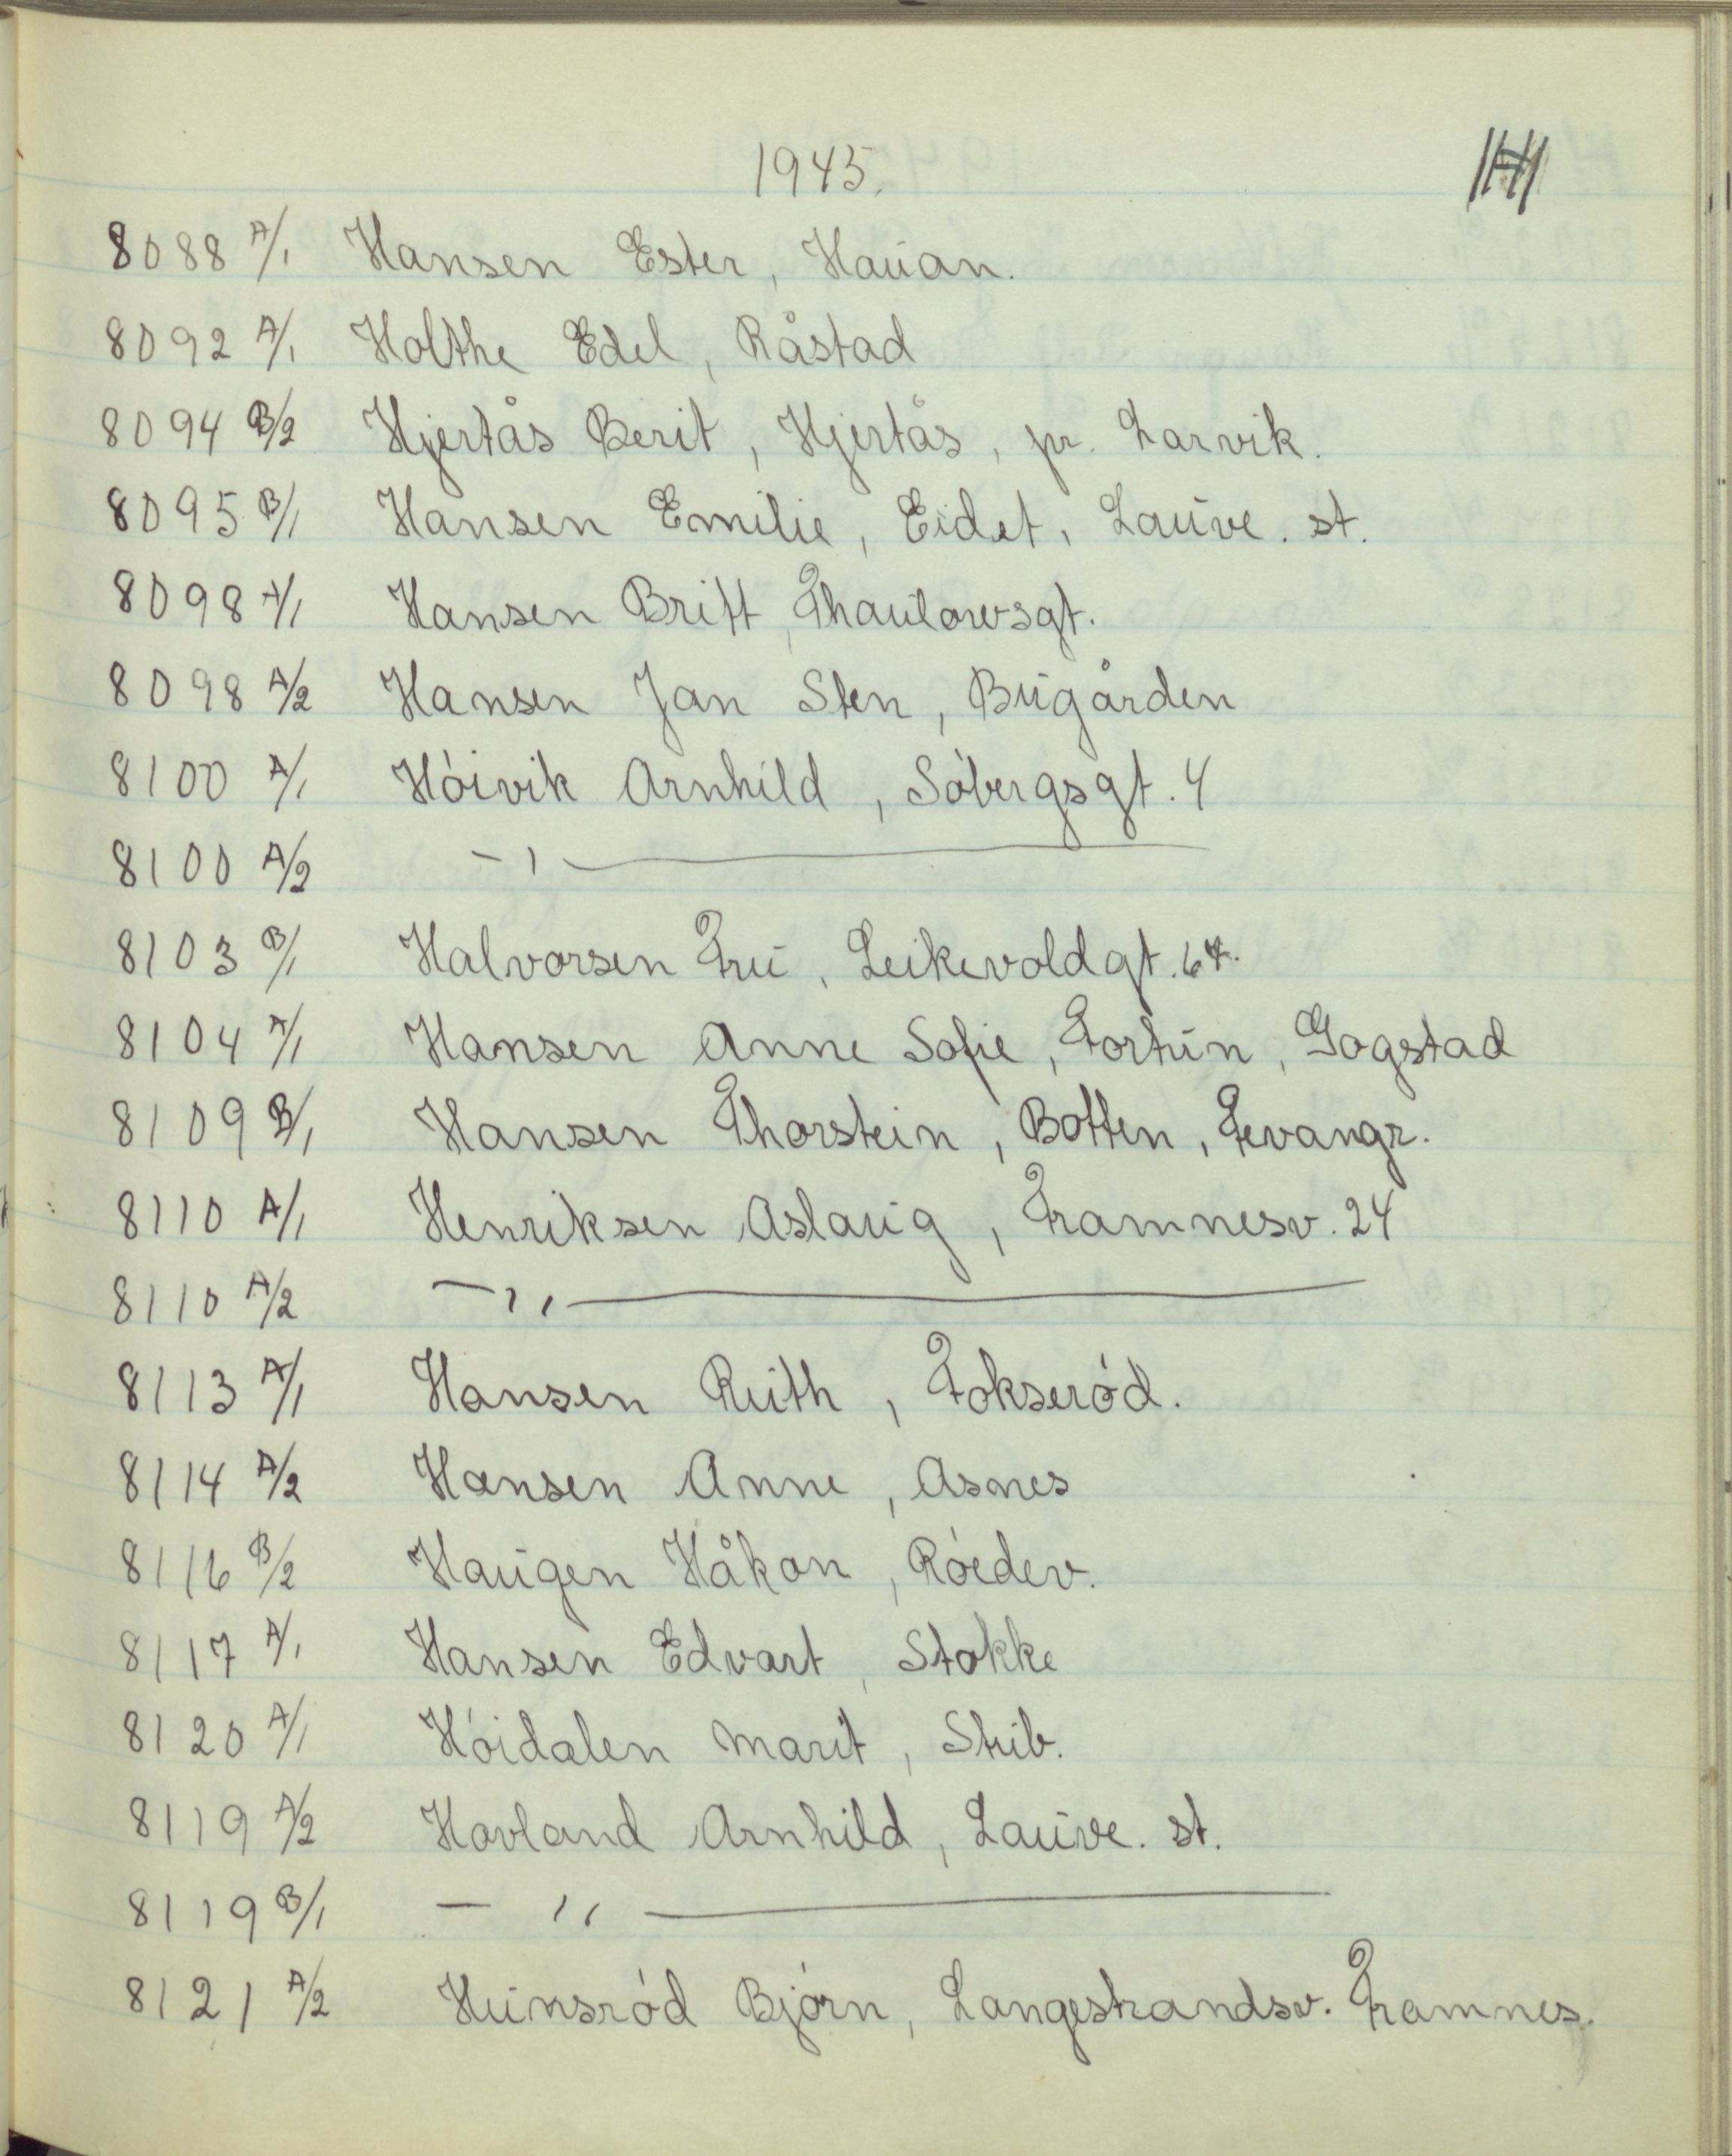 1945.
H
8088 A/1 Hansen Ester, Hauan.
8092 A/1 Holthe Edel, Råstad
8094 B/2 Hjertås Berit, Hjertås, pr. Larvik.
8095 B/1 Hansen Emilie, Eidet, Lauve. st.
8098 A/1 Hansen Britt, Thaulowsgt.
8098 A/2 Hansen Jan Sten, Bugården
8100 A/1 Hóivik Arnhild, Sóbergsgt. 4
8100 A/2 -"-
8103 B/1 Halvorsen Fru, Leikevoldgt. 64.
8104 A/1 Hansen Anne Sofie, Fortun, Gogstad
8109 B/1 Hansen Thorstein, Botten, Tevangr.
8110 A/1 Henriksen Aslaug, Framnesv. 24
8110 A/2 -"-
8113 A/1 Hansen Ruth, Fokseród.
8114 A/2 Hansen Anne, Asnes
8116 B/2 Haugen Håkon, Róedev.
8117 A/1 Hansen Edvart, Stokke
8120 A/1 Hóidalen Marit, Stub.
8119 A/2 Havland Arnhild, Lauve. st.
8119 B/1 - " -
8121 A/2 Hunsród Bjórn, Langestrandsv. Framnes.